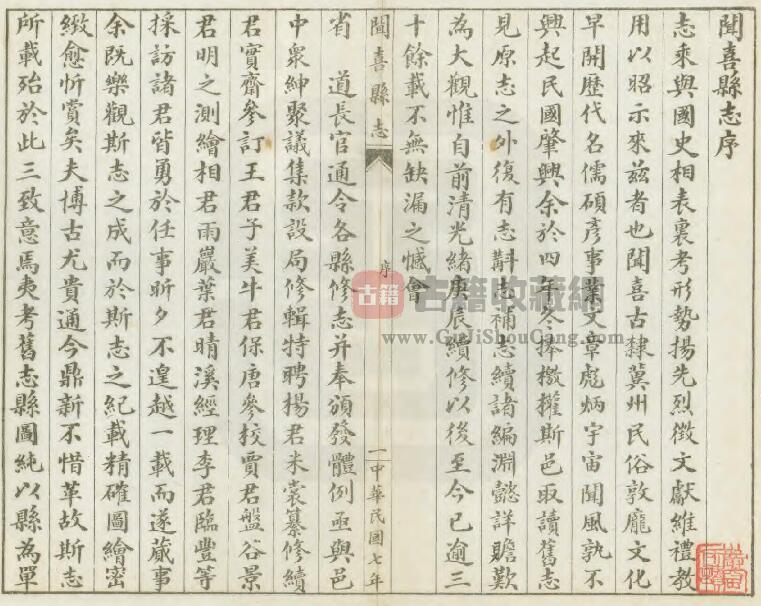 聞喜縣志序
志乘與國史相表裏考形勢揚先烈徵文獻維禮教
用以昭示來茲者也聞喜古隸冀州民俗敦龐文化
早開歷代名儒碩彥事業文章彪炳宇宙聞風孰不
興起民國肇興余於四年冬捧檄權斯邑取讀舊志
見原志之外復有志斠志補志續諸編淵懿詳贍歎
為大觀惟自前清光緒庚辰續修以後至今已逾三
十餘載不無缺漏之憾會
聞喜縣志
序
一中華民國七年
省　道長官通令各縣修志并奉頒發體例亟與邑
中衆紳聚議集款設局修輯特聘楊君米裳纂修續
君實齋參訂王君子美牛君保唐參校賈君盤谷景
君明之測繪相君雨巖葉君晴溪經理李君臨豐等
採訪諸君皆勇於任事昕夕不遑越一載而遂蕆事
余既樂觀斯志之成而於斯志之紀載精確圖繪密
緻愈忻賞矣夫博古尤貴通今鼎新不惜革故斯志
所載殆於此三致意焉夷考舊志縣圖純以縣為單
古籍
古籍收藏網
www.GuJiShouCang.com